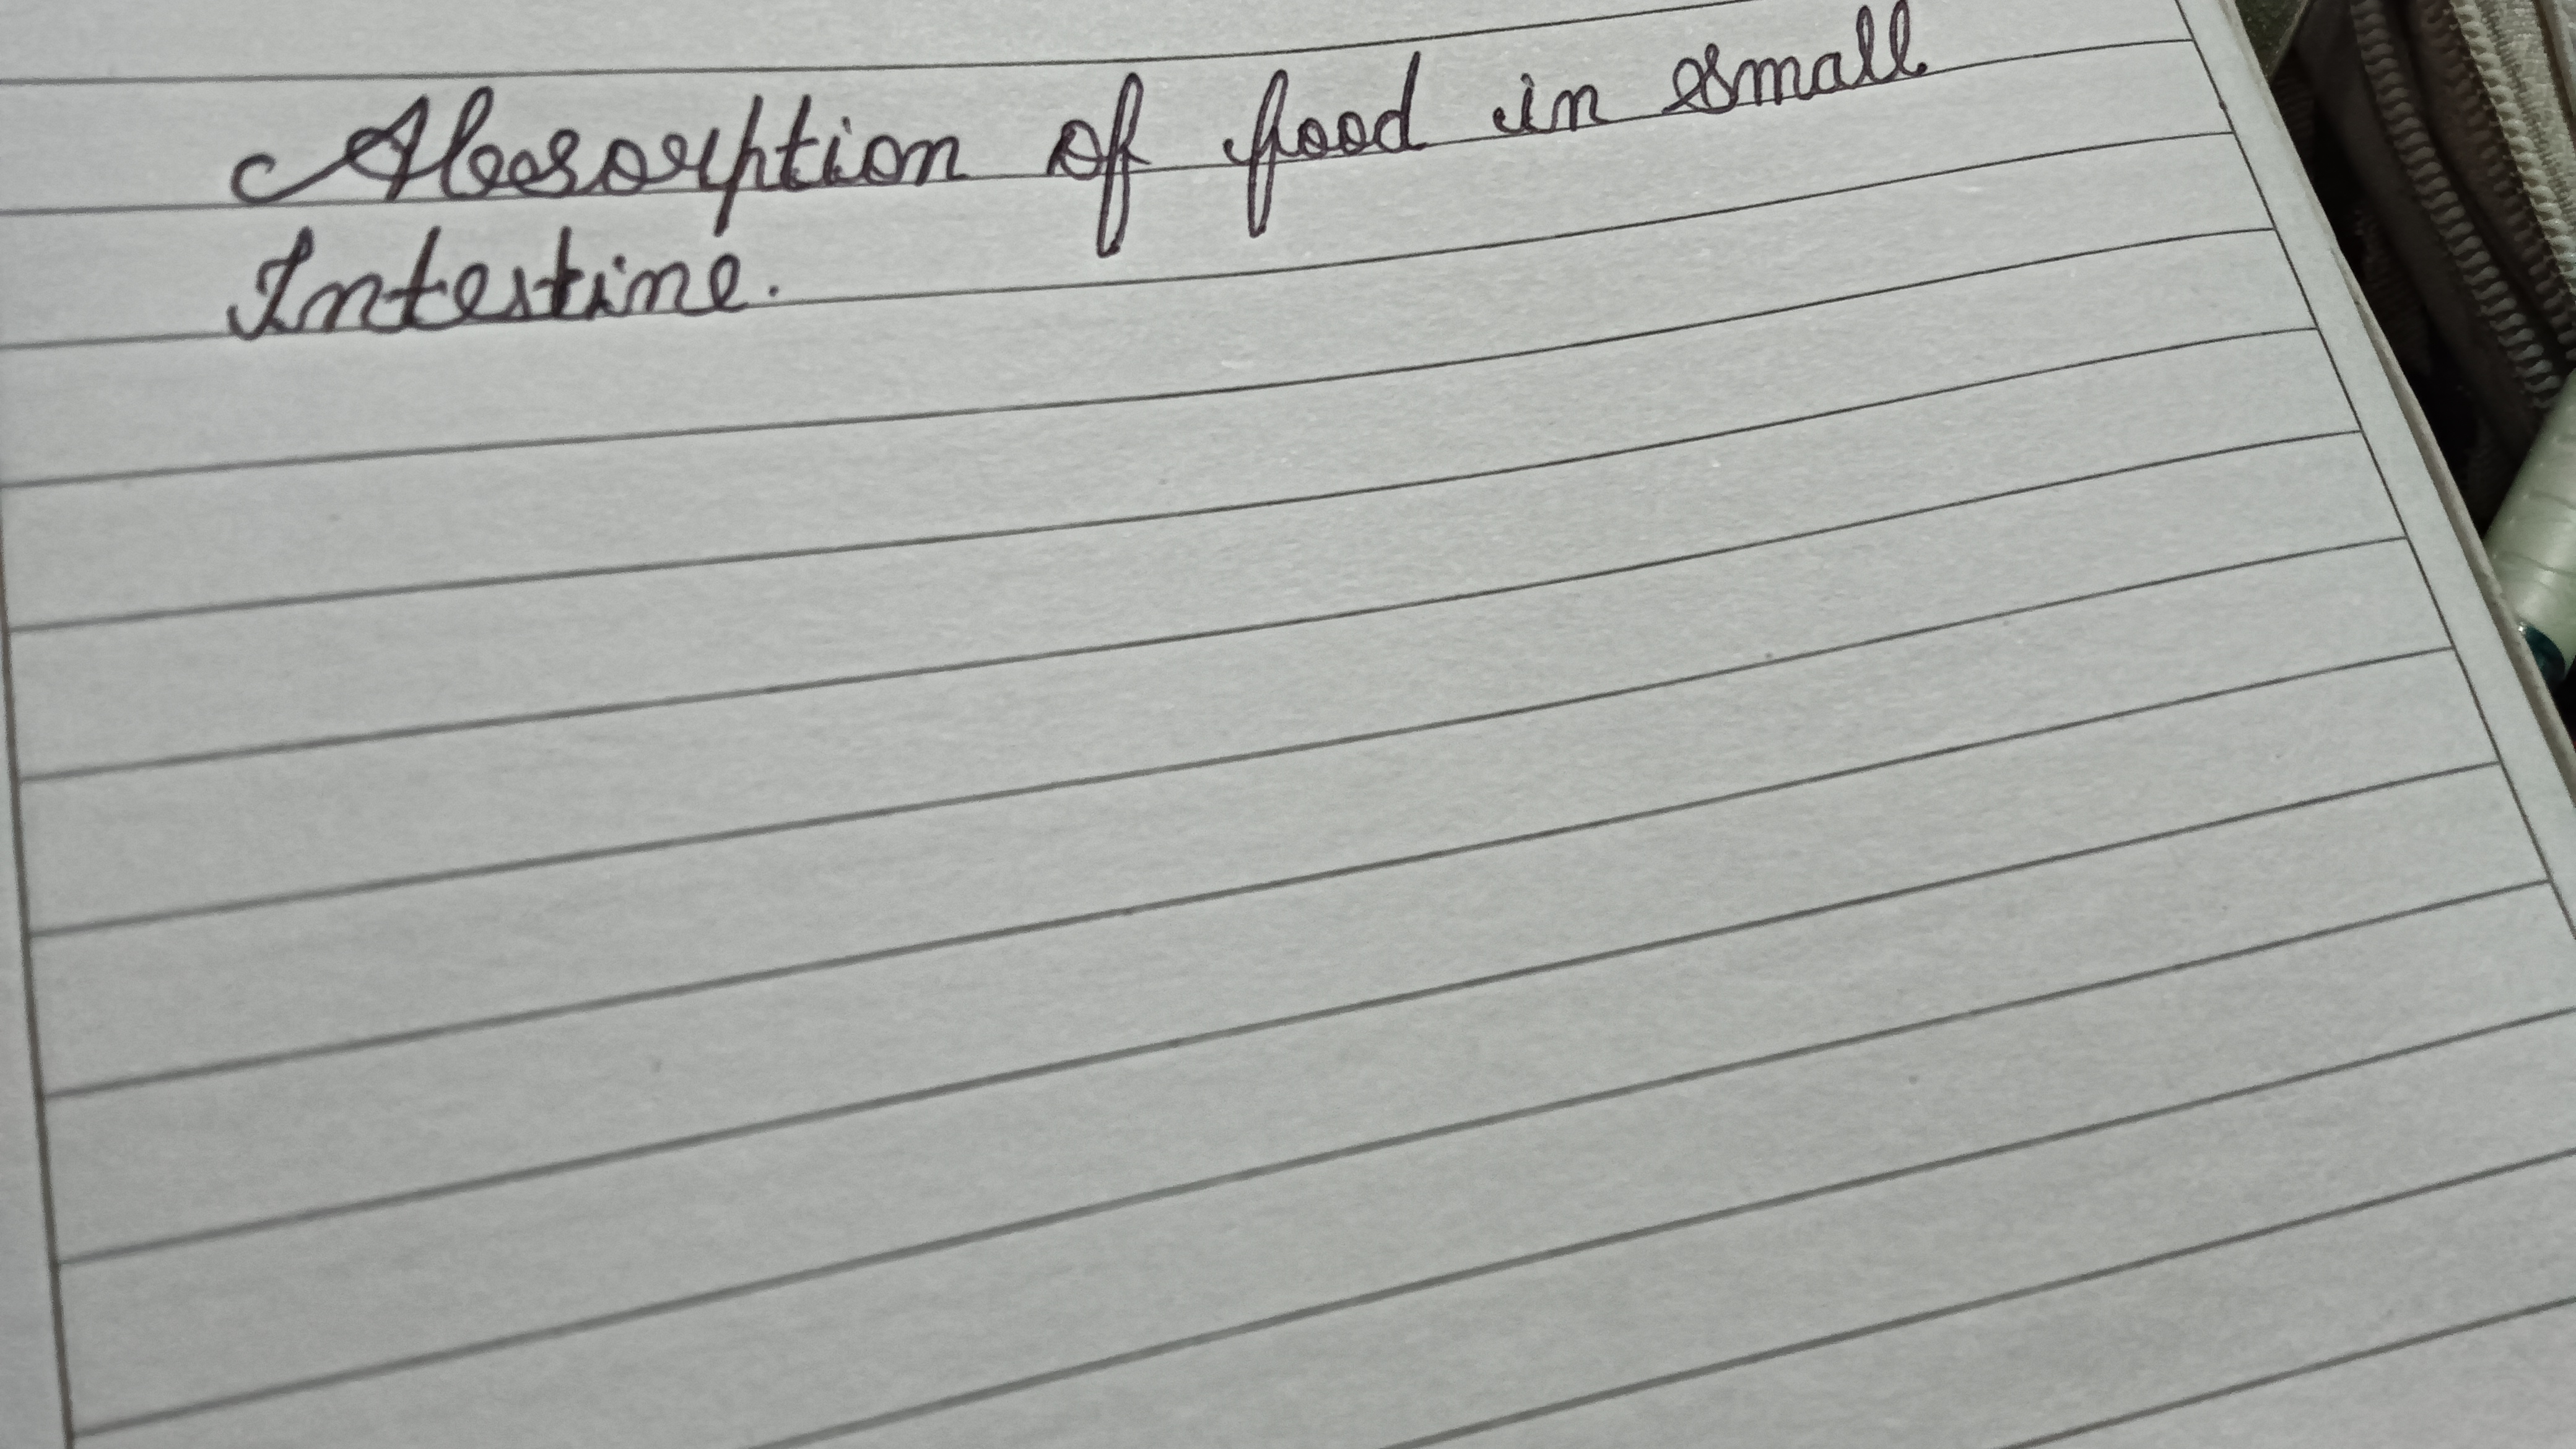 Absorption of food in small
Intestine.